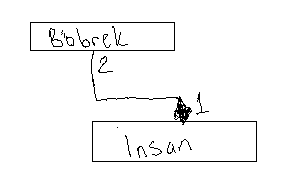 Böbrek
2
1
İnsan